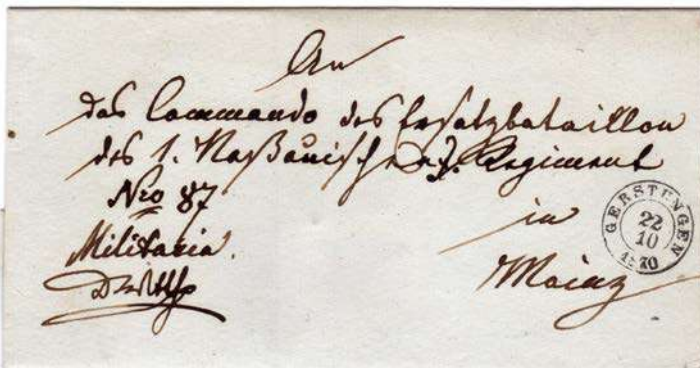 An
das Commando des Ersatzbataillon
des 1. Naßauischen Regiment
Nro 87
in
Militaria
Mainz
GERSTUNGEN
22
10
1870